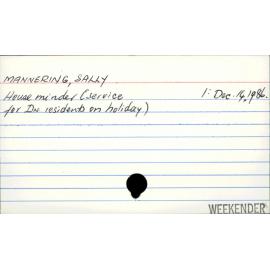 MANNERING, SALLY
House minder (service 1: Dec. 14, 1986.
for Dn residents on holiday)
WEEKENDER